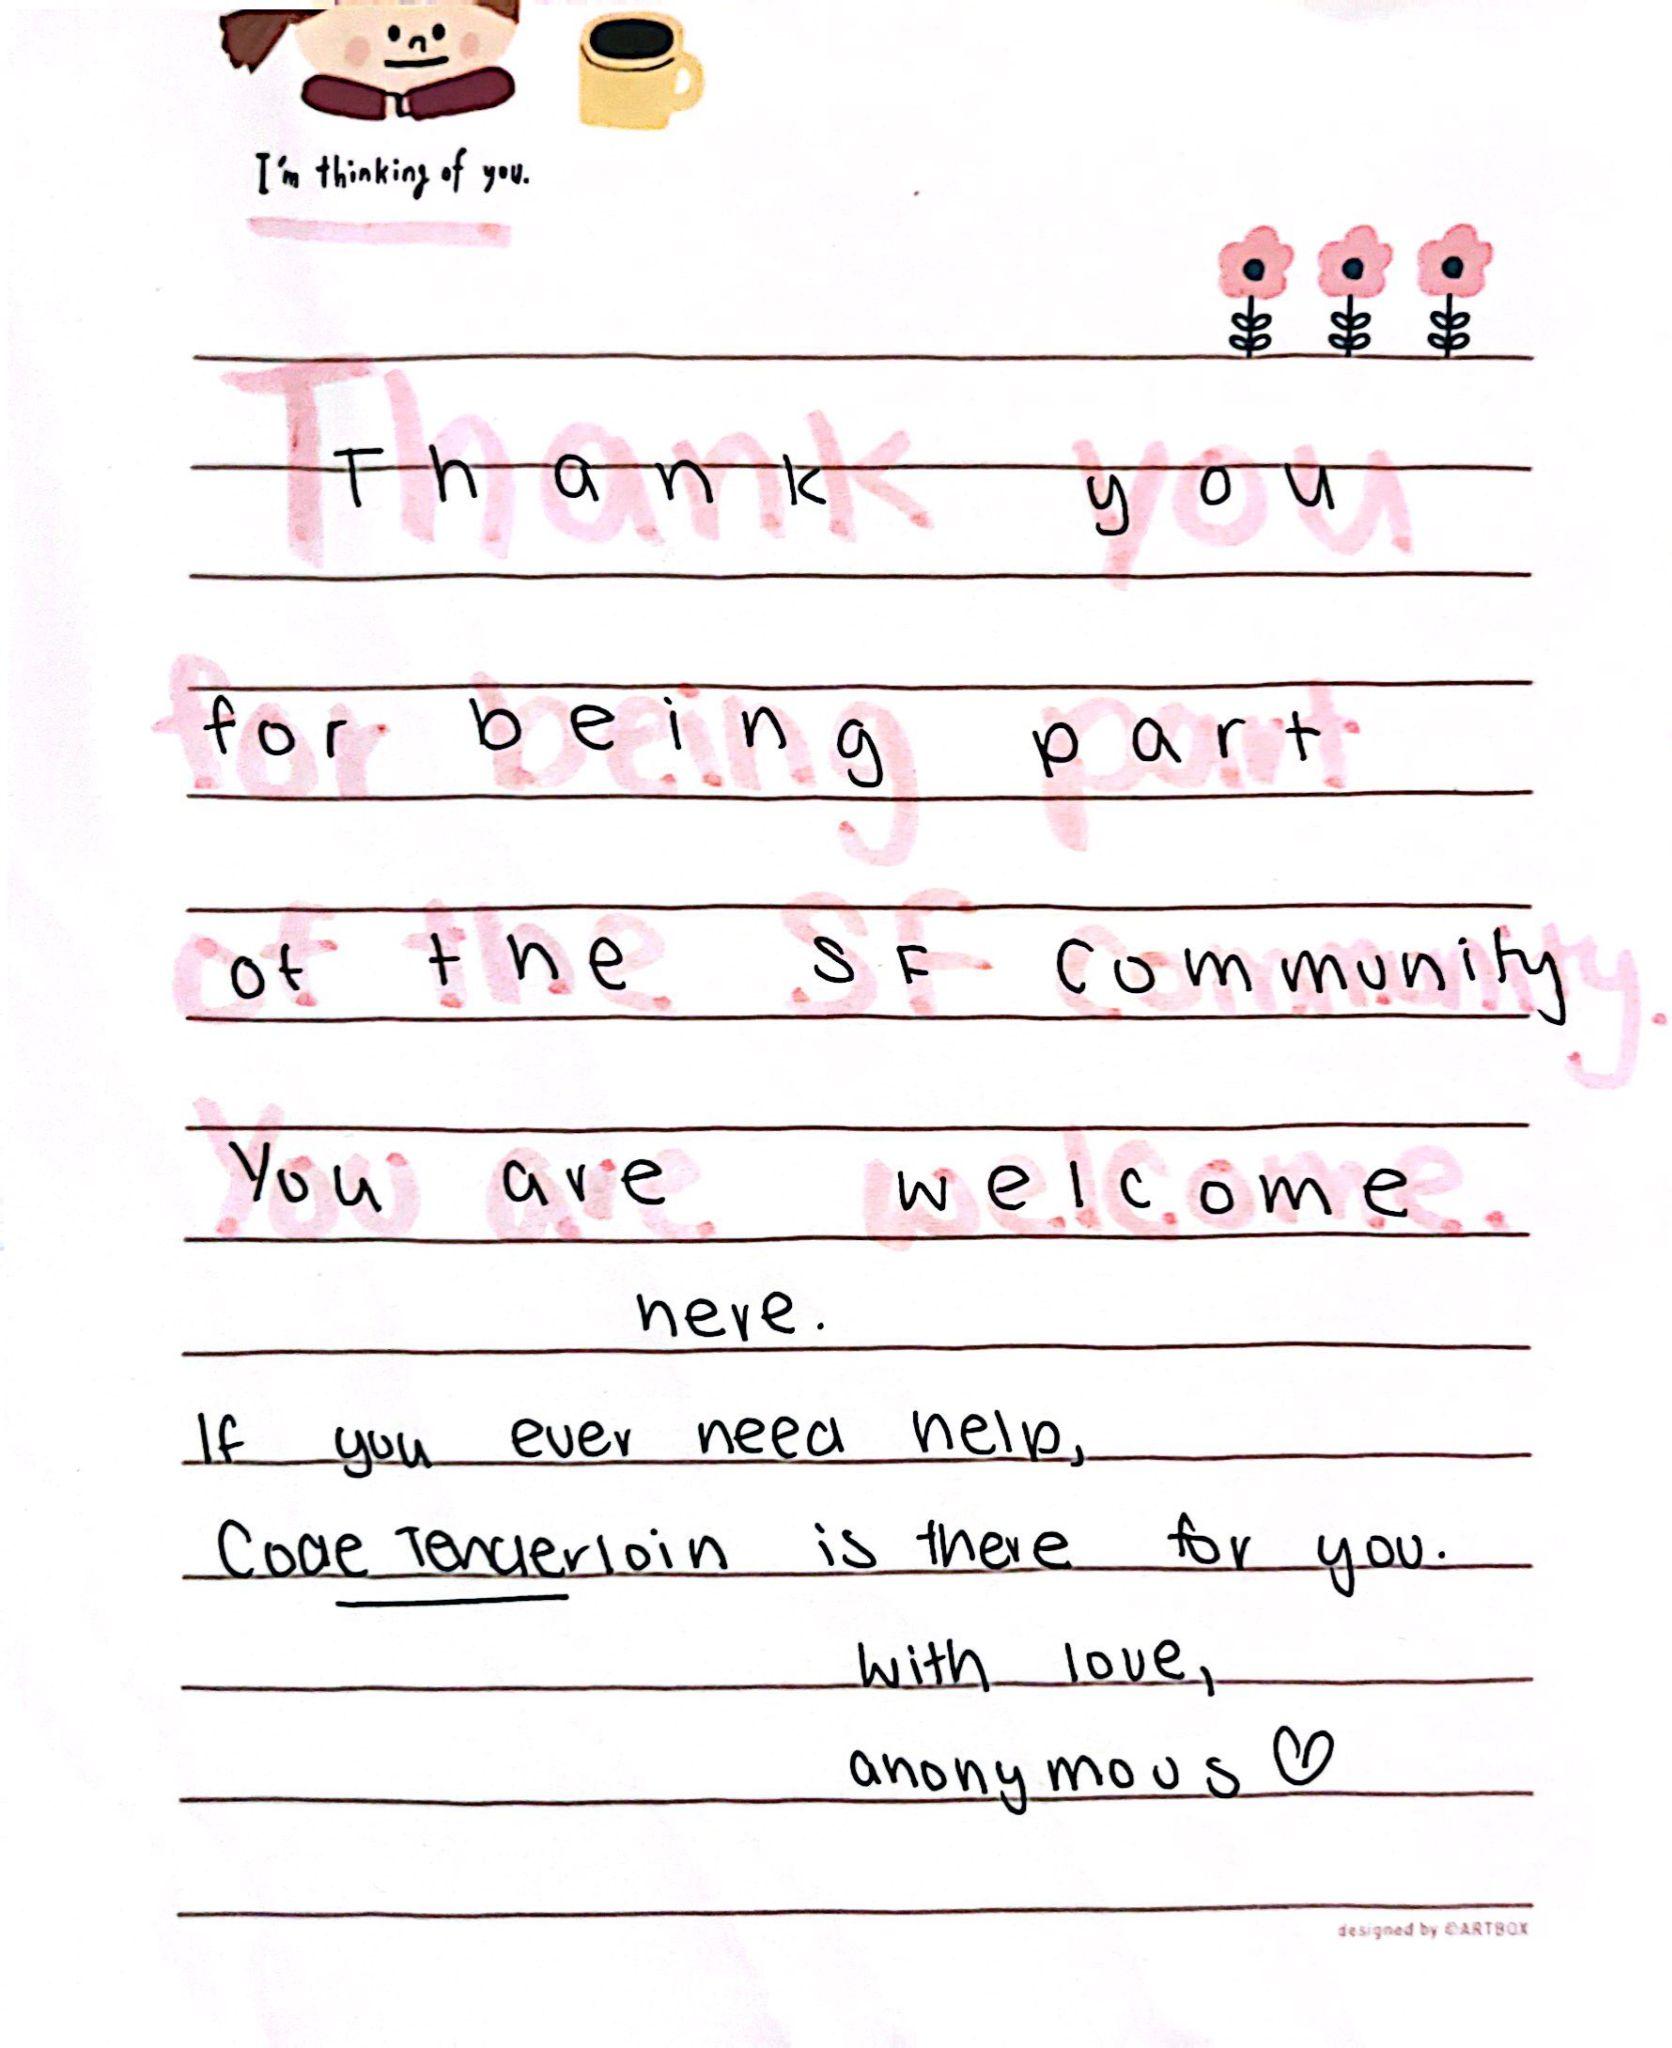 I'm thinking of you.
Thank you
for being part
of the SF community.
You are welcome.
here.
If you ever need help,
Code Tenderloin is there for you.
with love,
anonymous ♡
designed by ©ARTBOX